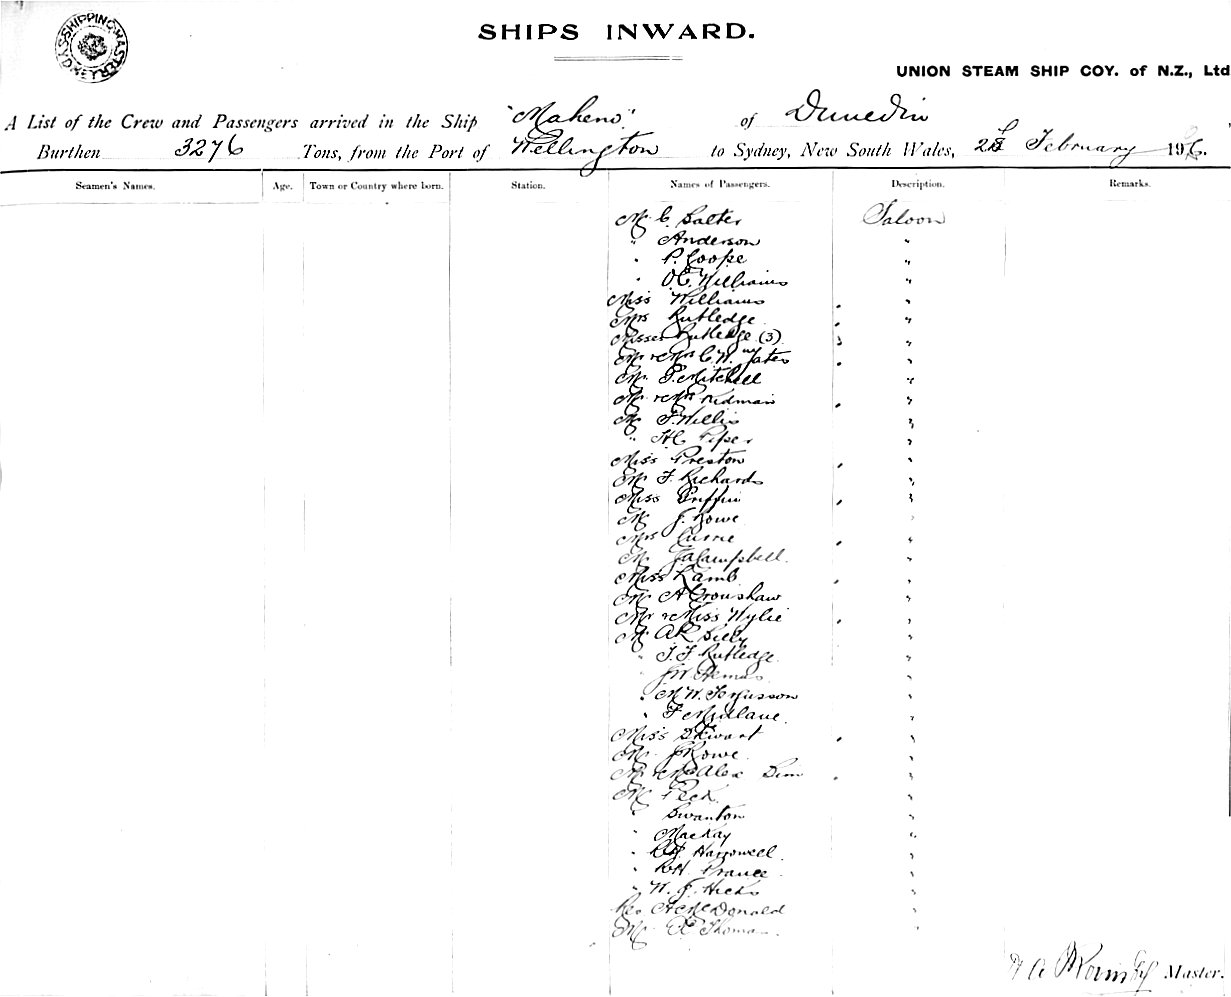 SHIPPING MASTER SYDNEY
SHIPS INWARD.
UNION STEAM SHIP COY. of N.Z., Ltd
A List of the Crew and Passengers arrived in the Ship "Maheno" of Dunedin
Burthen 3276 Tons, from the Port of Wellington to Sydney, New South Wales, February 19
Seamen's Names. Age. Town or Country where born. Station. Names of Passengers. Description. Remarks.
Mr C. Salter Saloon
" Anderson "
" P. Coope "
" O.C. Williams "
Miss Williams "
Mrs Rutledge "
Misses Rutledge (3) "
Mr & Mrs C.W. Yates "
Mr P. Mitchell "
Mr & Mrs Kidman "
Mr F. Willis "
" H.C. Piper "
Miss Preston "
Mr F. Richards "
Miss Griffin "
Mr J. Rowe "
Mrs Currie "
Mr J.A. Campbell "
Miss Lamb "
Mr A. Cronshaw "
Mr & Miss Wylie "
Mr "
" T.F. Rutledge "
" J.W. "
" M.W. Fergusson "
" F. Midlane "
Miss Stewart "
Mr J. Rowe "
Mr & Mrs Alex "
Mr Peck "
" Swanton "
" MacKay "
" Harrowell "
" R.H. France "
" W. J. Hicks "
Rev A McDonald "
Mr Thomas "
Master.